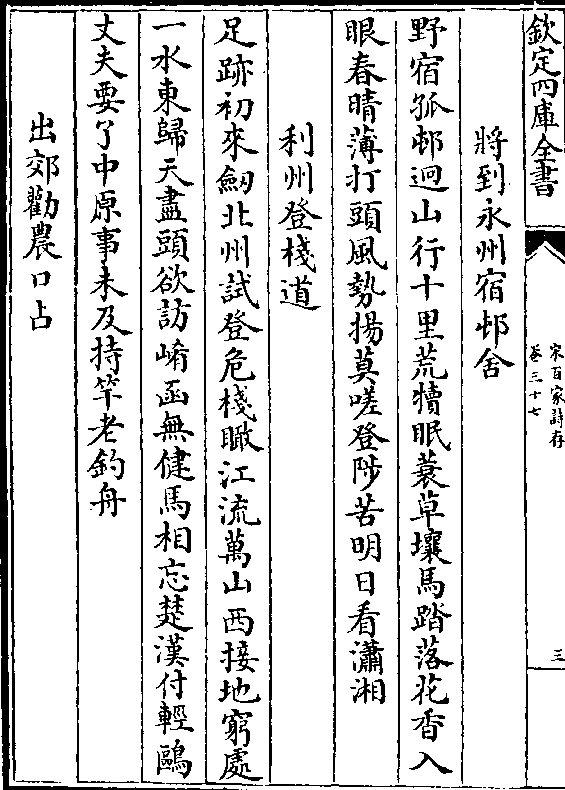 欽定四庫全書
宋百家詩存
卷三十七
三
將到永州宿邨舍
野宿孤邨迥山行十里荒犢眠蓑草壤馬踏落花香入
眼春晴薄打頭風勢揚莫嗟登陟苦明日看瀟湘
利州登棧道
足跡初來劒北州試登危棧瞰江流萬山西接地窮處
一水東歸天盡頭欲訪崤函無健馬相忘楚漢付輕鷗
丈夫要了中原事未及持竿老釣舟
出郊勸農口占